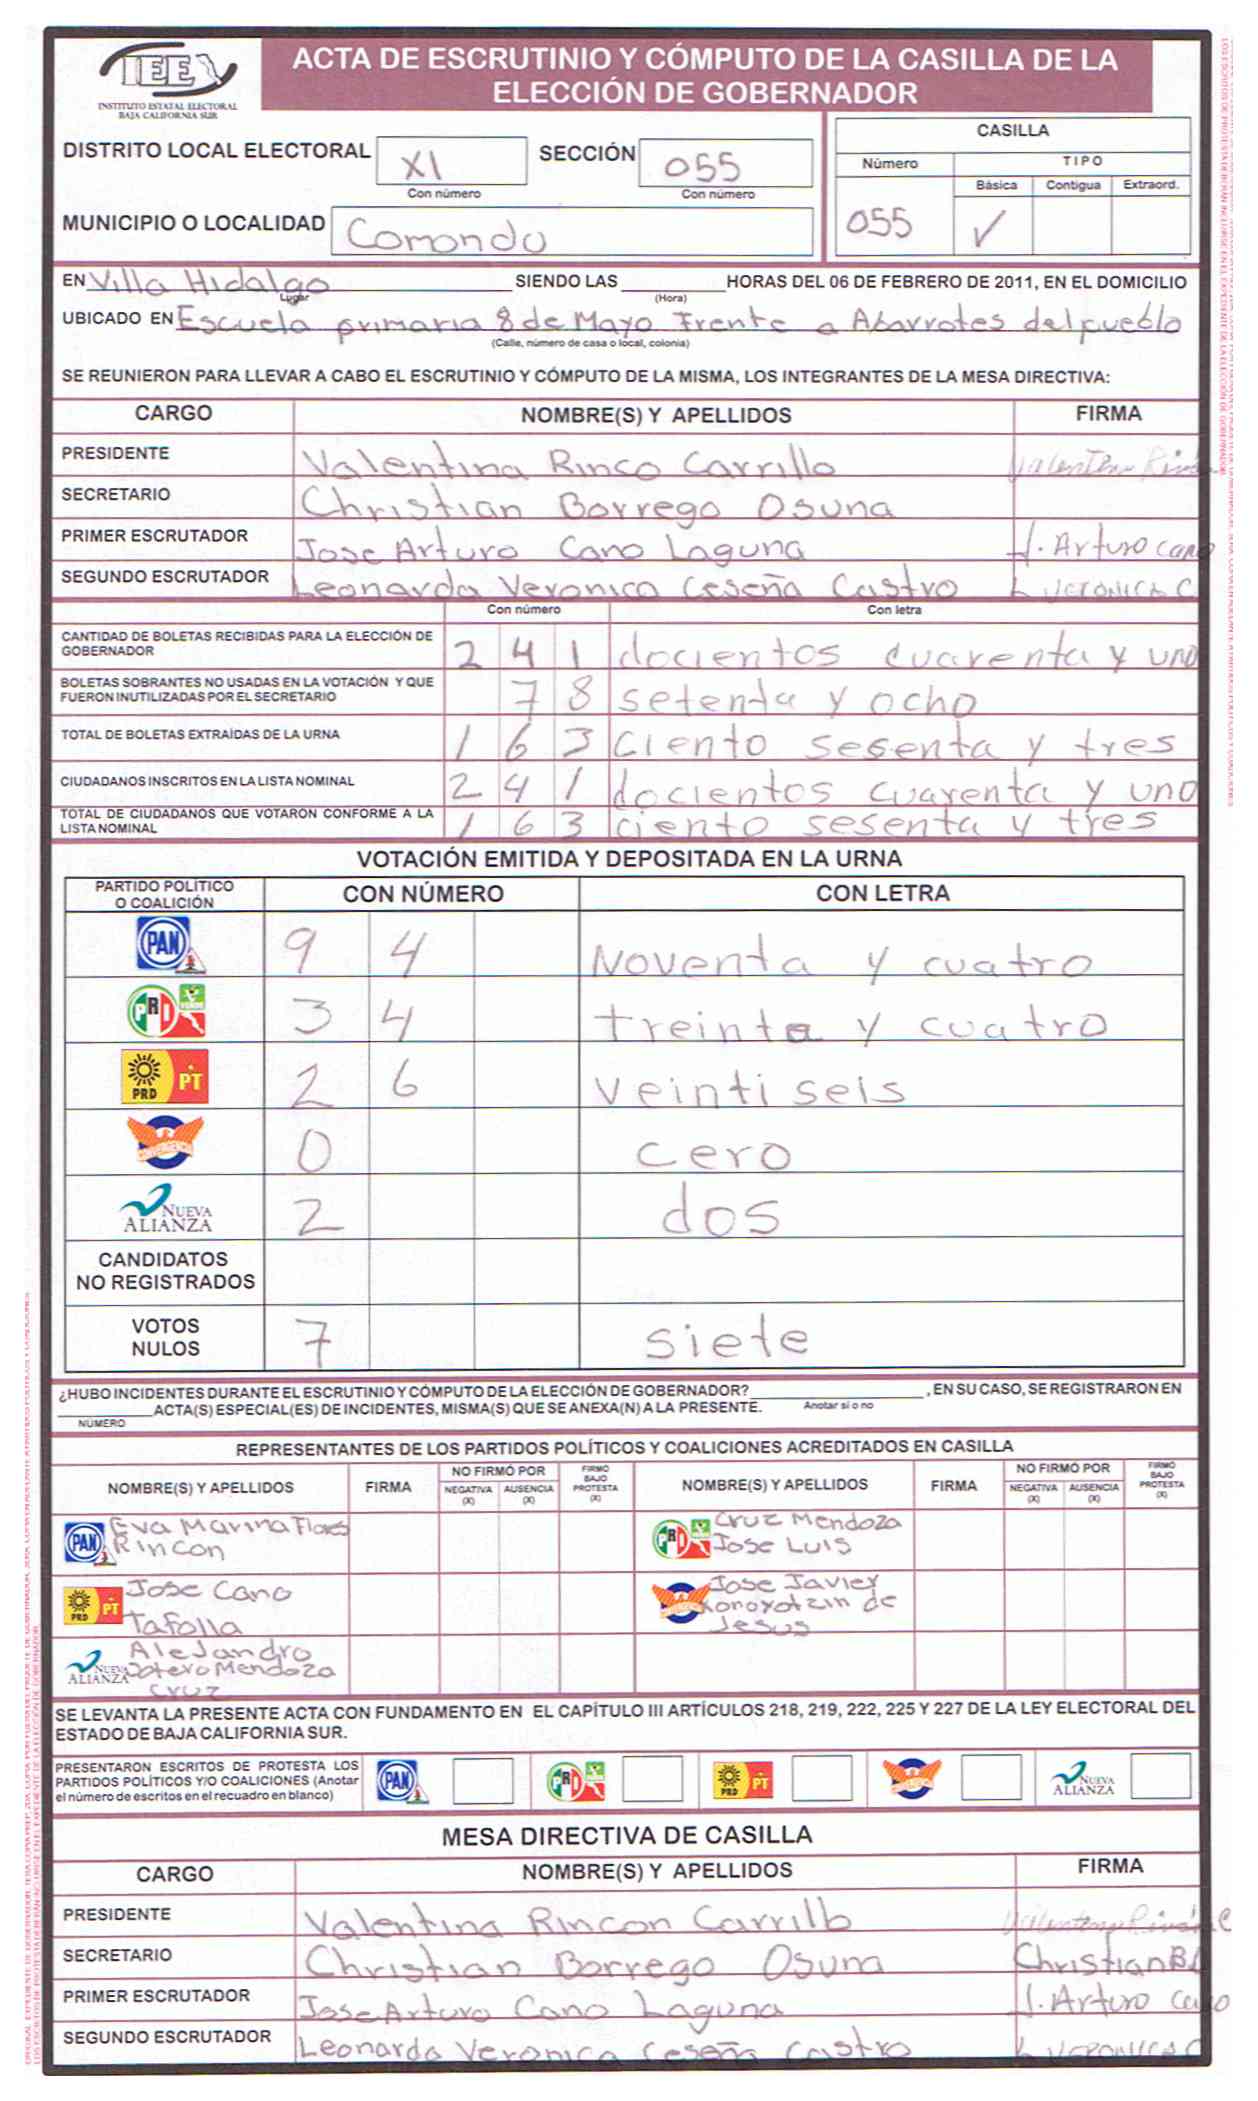 IEE
INSTITUTO ESTATAL ELECTORAL
BAJA CALIFORNIA SUR
ACTA DE ESCRUTINIO Y CÓMPUTO DE LA CASILLA DE LA
ELECCIÓN DE GOBERNADOR
DISTRITO LOCAL ELECTORAL XI SECCIÓN 055
Con número Con número
MUNICIPIO O LOCALIDAD Comondu
CASILLA
Número TIPO
Básica Contigua Extraord.
055 ✓
EN Villa Hidalgo SIENDO LAS HORAS DEL 06 DE FEBRERO DE 2011, EN EL DOMICILIO
Lugar (Hora)
UBICADO EN Escuela primaria 8 de Mayo Frente a Abarrotes del pueblo
(Calle, número de casa o local, colonia)
SE REUNIERON PARA LLEVAR A CABO EL ESCRUTINIO Y CÓMPUTO DE LA MISMA, LOS INTEGRANTES DE LA MESA DIRECTIVA:
CARGO NOMBRE(S) Y APELLIDOS FIRMA
PRESIDENTE Valentina Rinco Carrillo
SECRETARIO Christian Borrego Osuna
PRIMER ESCRUTADOR Jose Arturo Cano Laguna J. Arturo cano
SEGUNDO ESCRUTADOR Leonarda Veronica Ceseña Castro L VERONICA C
Con número Con letra
CANTIDAD DE BOLETAS RECIBIDAS PARA LA ELECCIÓN DE
GOBERNADOR 2 4 1 docientos cuarenta y uno
BOLETAS SOBRANTES NO USADAS EN LA VOTACIÓN Y QUE
FUERON INUTILIZADAS POR EL SECRETARIO 7 8 setenta y ocho
TOTAL DE BOLETAS EXTRAÍDAS DE LA URNA 1 6 3 ciento sesenta y tres
CIUDADANOS INSCRITOS EN LA LISTA NOMINAL 2 4 1 docientos cuarenta y uno
TOTAL DE CIUDADANOS QUE VOTARON CONFORME A LA
LISTA NOMINAL 1 6 3 ciento sesenta y tres
VOTACIÓN EMITIDA Y DEPOSITADA EN LA URNA
PARTIDO POLÍTICO
O COALICIÓN CON NÚMERO CON LETRA
PAN 9 4 Noventa y cuatro
PRI VERDE 3 4 treinta y cuatro
PRD PT 2 6 veinti seis
CONVERGENCIA 0 cero
NUEVA
ALIANZA 2 dos
CANDIDATOS
NO REGISTRADOS
VOTOS
NULOS 7 siete
¿HUBO INCIDENTES DURANTE EL ESCRUTINIO Y CÓMPUTO DE LA ELECCIÓN DE GOBERNADOR? , EN SU CASO, SE REGISTRARON EN
ACTA(S) ESPECIAL(ES) DE INCIDENTES, MISMA(S) QUE SE ANEXA(N) A LA PRESENTE. Anotar sí o no
NÚMERO
REPRESENTANTES DE LOS PARTIDOS POLÍTICOS Y COALICIONES ACREDITADOS EN CASILLA
NOMBRE(S) Y APELLIDOS FIRMA NO FIRMÓ POR NEGATIVA (X) AUSENCIA (X) FIRMÓ BAJO PROTESTA (X) NOMBRE(S) Y APELLIDOS FIRMA NO FIRMÓ POR NEGATIVA (X) AUSENCIA (X) FIRMÓ BAJO PROTESTA (X)
PAN Eva Marina Flores
Rincon
PRI Cruz Mendoza
Jose Luis
PRD PT Jose Cano
Tafolla
Jose Javier
de
Jesus
NUEVA ALIANZA Alejandro
Sotero Mendoza
Cruz
SE LEVANTA LA PRESENTE ACTA CON FUNDAMENTO EN EL CAPÍTULO III ARTÍCULOS 218, 219, 222, 225 Y 227 DE LA LEY ELECTORAL DEL
ESTADO DE BAJA CALIFORNIA SUR.
PRESENTARON ESCRITOS DE PROTESTA LOS
PARTIDOS POLÍTICOS Y/O COALICIONES (Anotar
el número de escritos en el recuadro en blanco)
PAN PRI PRD PT NUEVA ALIANZA
MESA DIRECTIVA DE CASILLA
CARGO NOMBRE(S) Y APELLIDOS FIRMA
PRESIDENTE Valentina Rincon Carrillo
SECRETARIO Christian Borrego Osuna Christian B
PRIMER ESCRUTADOR Jose Arturo Cano Laguna J. Arturo Cano
SEGUNDO ESCRUTADOR Leonarda Veronica Ceseña Castro L VERONICA C